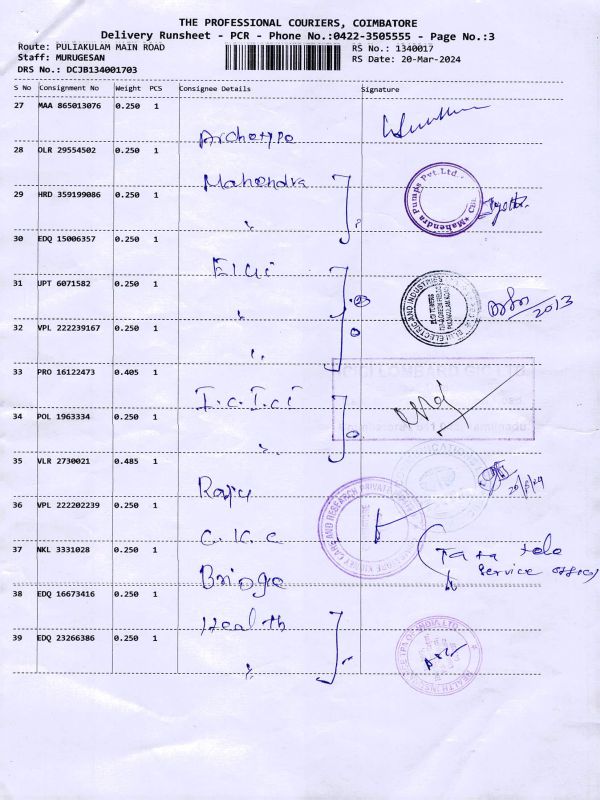 THE PROFESSIONAL COURIERS, COIMBATORE
Delivery Runsheet - PCR - Phone No.:0422-3505555 - Page No.:3
Route: PULIAKULAM MAIN ROAD RS No.: 1340017
Staff: MURUGESAN RS Date: 20-Mar-2024
DRS No.: DCJB134001703
S No Consignment No Weight PCS Consignee Details Signature
27 MAA 865013076 0.250 1
Archetype
28 OLR 29554502 0.250 1
Mahendra
Mahendra Pumps Pvt. Ltd.
29 HRD 359199086 0.250 1
"
30 EDQ 15006357 0.250 1
Elgi
31 UPT 6071582 0.250 1
"
2013
32 VPL 222239167 0.250 1
"
33 PRO 16122473 0.405 1
I.c.I.ci
34 POL 1963334 0.250 1
"
35 VLR 2730021 0.485 1
Raju
20/3/24
36 VPL 222202239 0.250 1
G.K.C
37 NKL 3331028 0.250 1
Tata tele
Service office)
Bridge
38 EDQ 16673416 0.250 1
Health
39 EDQ 23266386 0.250 1
"
HEALTH INSURANCE TPA OF INDIA LTD.